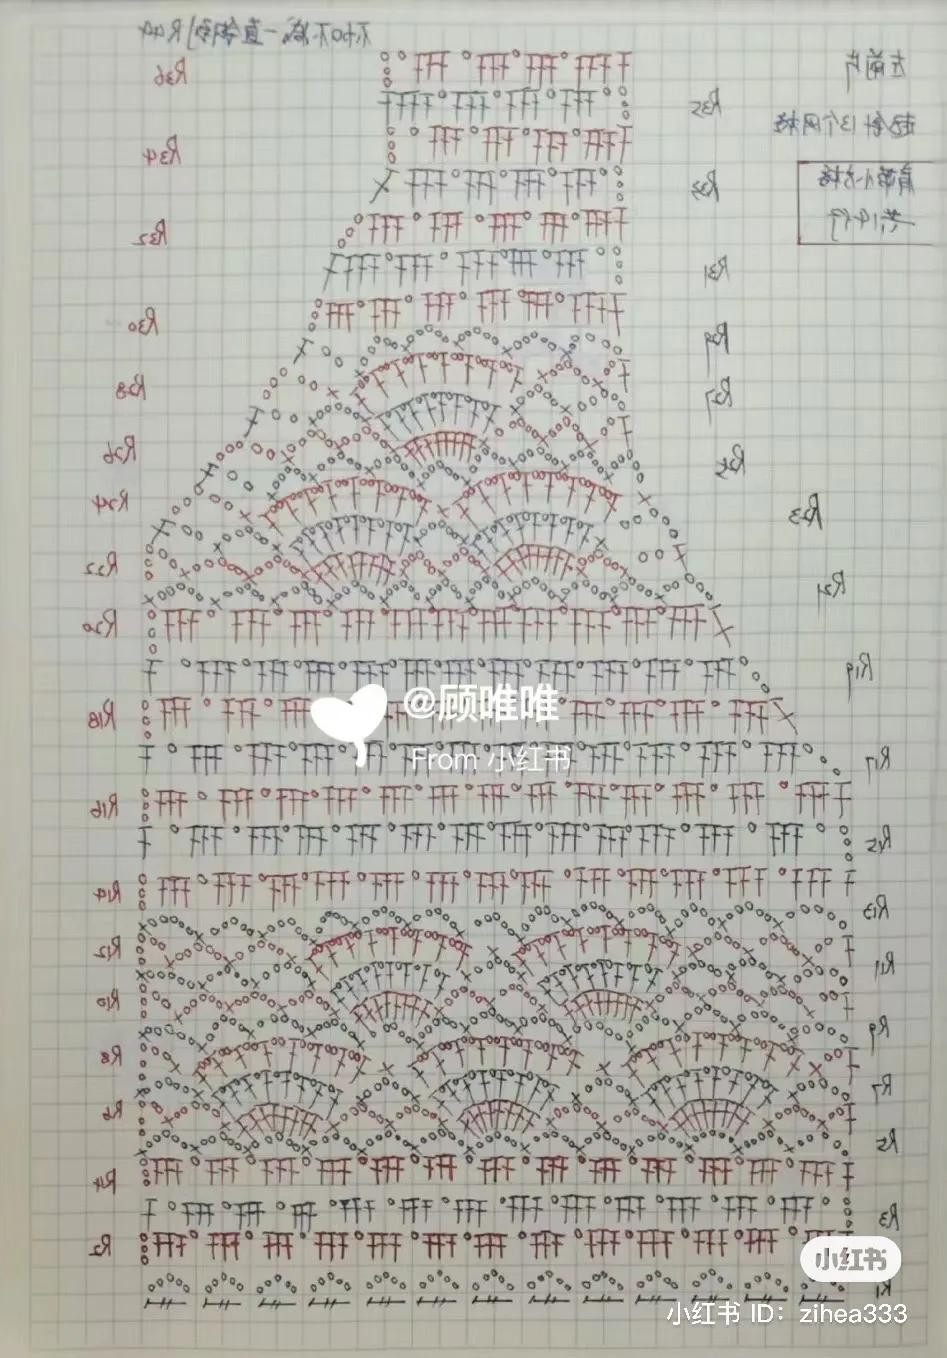 不加不减一直钩到R44
左前片
R36
R35
起针13个网格
R34
肩带小方格
R33
共14行
R32
R31
R30
R29
R28
R27
R26
R25
R24
R23
R22
R21
R20
R19
@顾唯唯
R18
From 小红书
R17
R16
R15
R14
R13
R12
R11
R10
R9
R8
R7
R6
R5
R4
R3
R2
小红书
R1
小红书 ID: zihea333